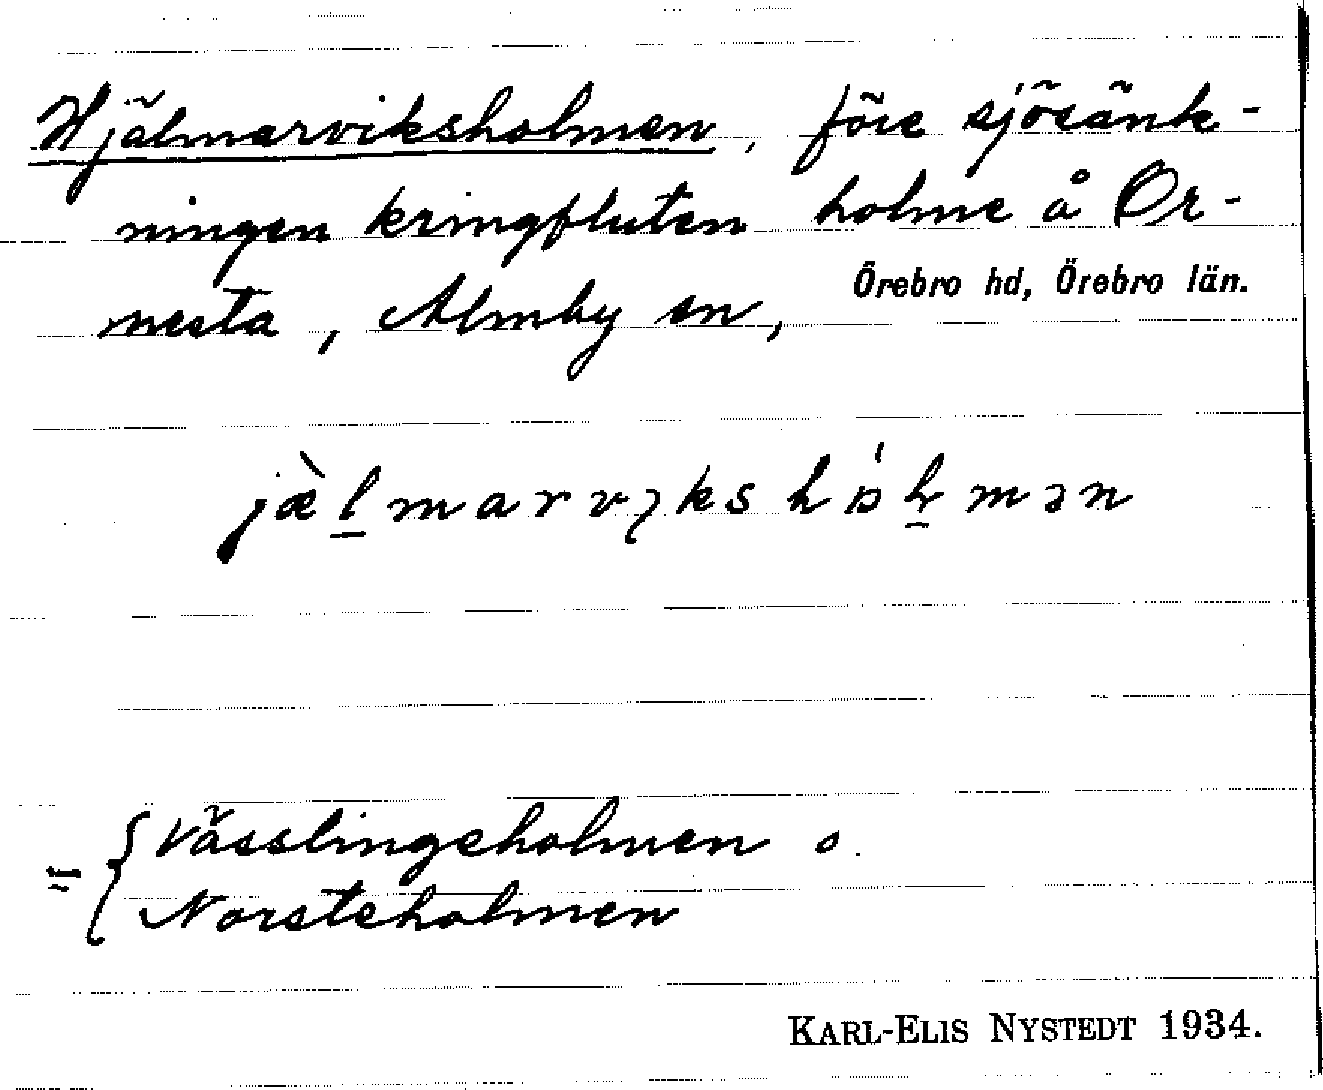 Hjälmarviksholmen, före sjösänk-
ningen kringfluten holme å Or-
nesta, Almby sn, Örebro hd, Örebro län.
= { Vässlingeholmen o.
Norsteholmen
KARL-ELIS NYSTEDT 1934.